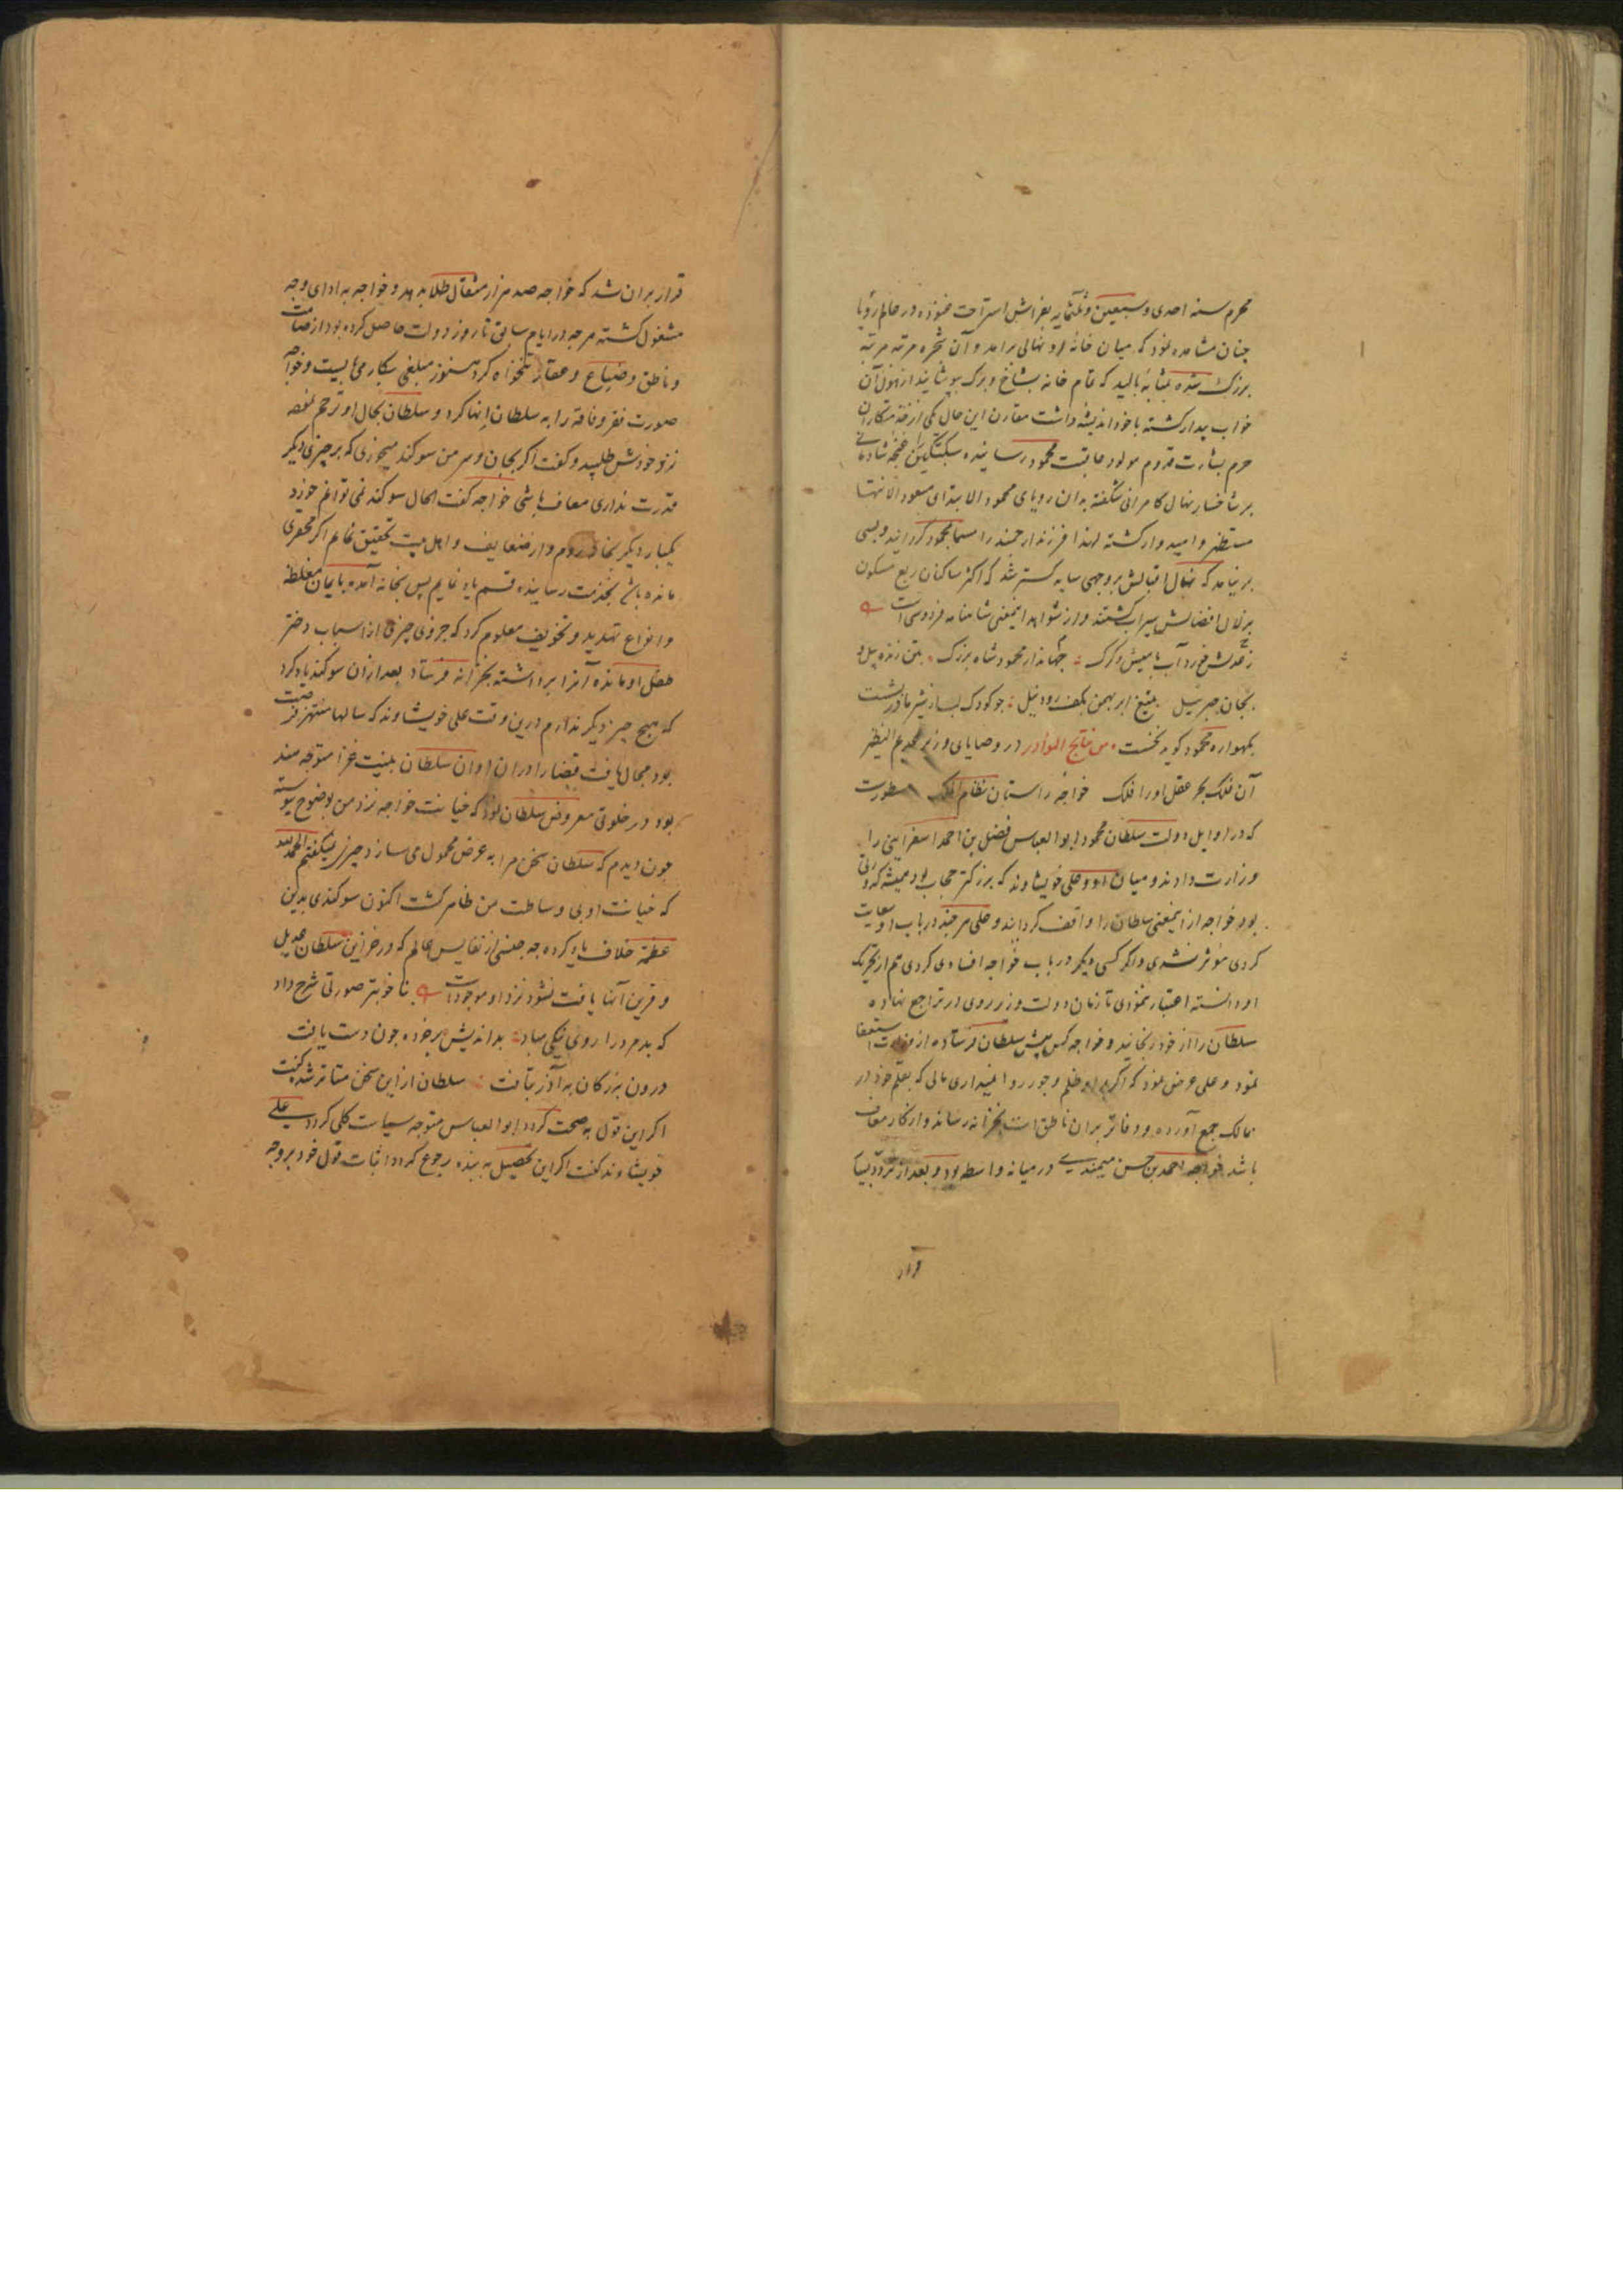 محرم سنه احدی و سبعین و ثلثمایه بفراش استراحت غنوده در عالم رؤیا
چنان مشاهده نمود که میان خانهٔ او نهالی برآمد و آن شجره مرتبه مرتبه
بزرک شده بمثابهٔ بالید که تمام خانه بشاخ و برک بپوشانید از هول آن
خواب بیدار کشته با خود اندیشه داشت مقارن این حال یکی از
حرم بشارت قدوم مولود عاقبت محمود رسانیده سبکتکین را غنچه شادمانی
بر شاخسار نهال کامرانی شکفته بدان رویای محمود الابتدای مسعود الانتها
مستظهر و امیدوار کشته لهذا فرزند ارجمند را مسما بمحمود کردانید و بسی
برنیامد که نهال اقبالش بروجهی سایه کستر شد که اکثر ساکنان ربع مسکون
بزلال افضالش سیراب کشتند و از شواهد اینمعنی شاهنامه فردوسی است
ز عدلش خورد آب با میش و کرک جهاندار محمود شاه بزرک بتن زنده پیل و
بجان جبرئیل بتیغ ابر بهمن بکف رود نیل جو کودک لب از شیر مادر بشست
بکهواره محمود کوید نخست من نتایج النوادر در وصایای وزیر عدیم النظیر
آن فلک بحر عقل اورا فلک خواجه راستان نظام الملک مسطورست
که در اوایل دولت سلطان محمود ابوالعباس فضل بن احمد اسفراینی را
وزارت دادند و میان او و علی خویشاوند که بزرکتر حجاب بود همیشه کدورتی
بود خواجه از اینمعنی سلطان را واقف کردانید و علی هر چند در باب او سعایت
کردی مؤثر نشدی و اگر کسی دیکر در باب خواجه افسادی کردی هم از تحریک
او دانسته اعتبار ننمودی تا زمان دولت وزیر روی در تراجع نهاده
سلطان را از خود رنجانید و خواجه کس پیش سلطان فرستاده از وزارت استعفا
نمود و علی عرض نمود که اکر بر او ظلم و جور روا نمیداری مالی که بقلم خود در
ممالک جمع آورده و دفاتر بران ناطق است بخزانه رساند و از کار معاف
باشد خواجه احمد بن حسن میمندی در میانه واسطه بود و بعد از تردد بسیار
قرار
قرار بران شد که خواجه صد هزار مثقال طلا بدهد و خواجه به ادای وجه
مشغول کشته هرچه در ایام سابق تا روز دولت حاصل کرده بود از صامت
و ناطق و ضیاع و عقار تنخواه کرد هنوز مبلغی بکار می بایست و خواجه
صورت فقر و فاقه را به سلطان انها کرد و سلطان بحال او ترحم نموده
نزد خودش طلبید و کفت اکر بجان و سر من سوکند میخوری که بر چیزی دیکر
قدرت نداری معاف باشی خواجه کفت الحال سوکند نمی توانم خورد
یکبار دیکر بخانه روم و از ضعایف و اهل بیت تحقیق نمایم اکر محقری
مانده باشد بخدمت رسانیده قسم یاد نمایم پس بخانه آمده بایمان مغلظه
و انواع تهدید و تخویف معلوم کرد که جزوی چیزی از اسباب دختر
طفل او مانده آنرا برداشته بخزانه فرستاد بعد ازان سوکند یاد کرد
که هیچ چیز دیکر ندارم درین وقت علی خویشاوند که سالها منتهز فرصت
بود مجال یافت قضا را دران اوان سلطان بنیت غزا متوجه هند
بود در خلوتی معروض سلطان نمود که خیانت خواجه نزد من بوضوح پیوسته
جون دیدم که سلطان سخن مرا به غرض محمول می سازد چیزی نمیکفتم الحمدلله
که خیانت او بی وساطت من ظاهر کشت اکنون سوکندی بدین
عظمة خلاف یاد کرده چه جنسی از نفایس عالم که در خزاین سلطان عدیل
و قرین آنها یافت نشود نزد او موجود است تا خوبتر صورتی شرح داد
که بد مرد را روی نیکی مباد بداندیش بر خرده جون دست یافت
درون بزرکان به آذر بتافت سلطان ازین سخن متاثر شده کفت
اکر این قول به صحت کردد ابوالعباس متوجه سیاست کلی کردد علی
خویشاوند کفت اکر این تحصیل به بنده رجوع کردد اثبات قول خود بروجه